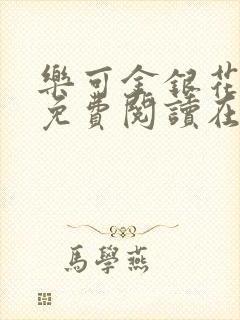 樂可金銀花
免費閱讀在
馬學燕